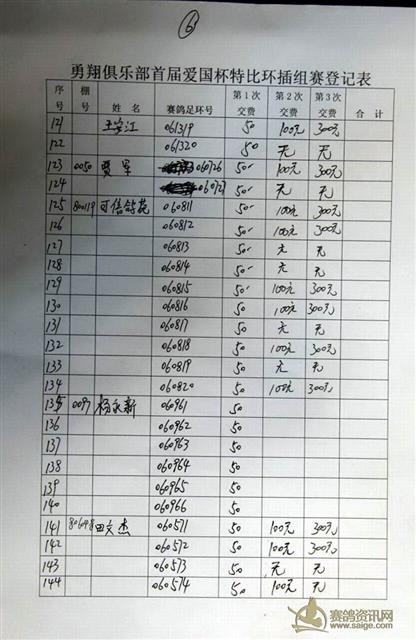 6
勇翔俱乐部首届爱国杯特比环插组赛登记表
序号 棚号 姓名 赛鸽足环号 第1次交费 第2次交费 第3次交费 合计
121 061319 50 100元 300元
122 061320 50 无 无
123 0050 贾军 060726 50 100元 300元
124 060727 50 无 无
125 80119 可信鸽苑 060811 50 100元 300元
126 060812 50 100元 300元
127 060813 50 无 无
128 060814 50 无 无
129 060815 50 100元 300元
130 060816 50 100元 300元
131 060817 50 无 无
132 060818 50 100元 300元
133 060819 50 无 无
134 060820 50 100元 300元
135 0097 杨永新 060961 50
136 060962 50
137 060963 50
138 060964 50
139 060965 50
140 060966 50
141 80648 田文杰 060571 50 100元 300元
142 060572 50 100元 300元
143 060573 50 无 无
144 060574 50 100元 无
赛鸽资讯网
www.saige.com